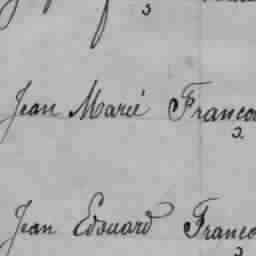 Jean Marie Franco
2
Jean Edouard Franco
2